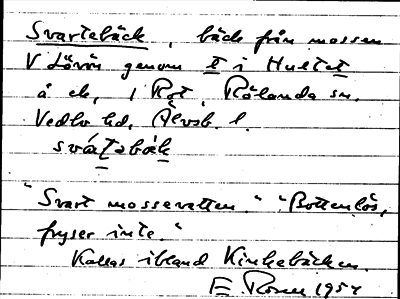 Svartebäck, bäck från mossen
V Lövön genom E i Hultet
å ek, 1 Rot, Rölanda sn.
Vedbo hd, Älvsb. l.
svátabäk
"Svart mossevatten." "Bottenlös,
fryser inte"
Kallas ibland Kinnebäcken.
E Rosén 1954